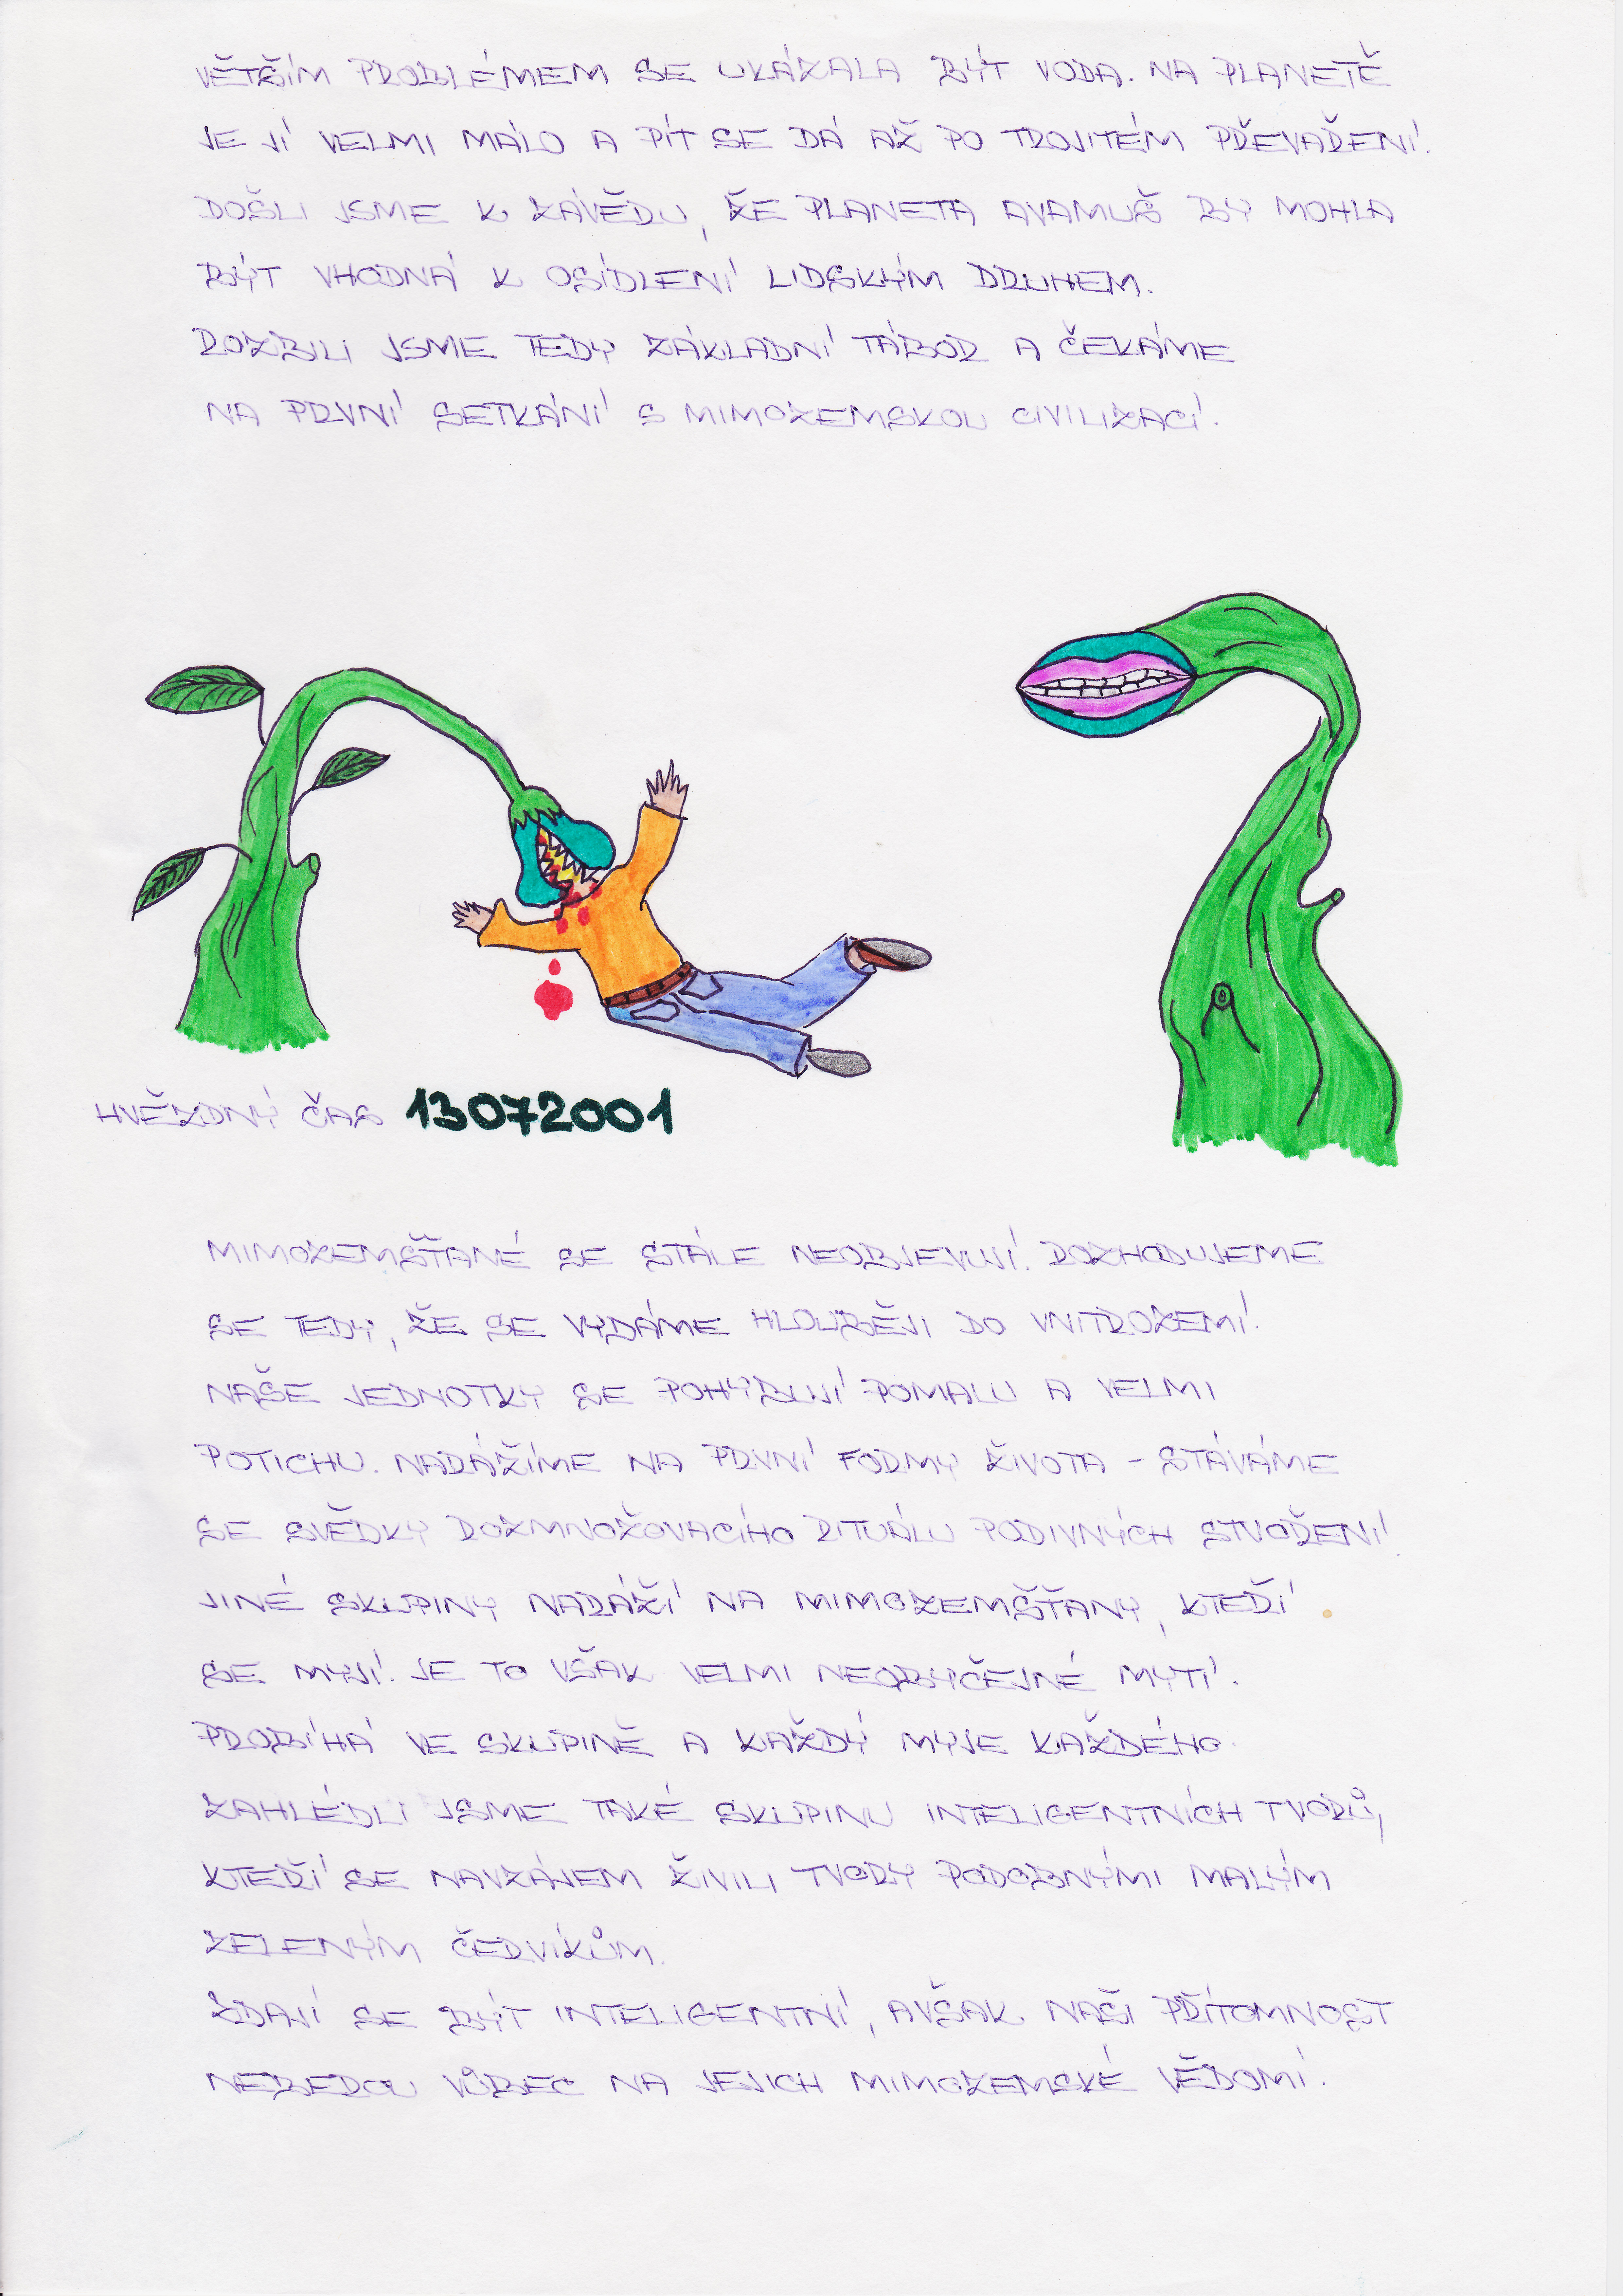 VĚTŠÍM PROBLÉMEM SE UKÁZALA BÝT VODA. NA PLANETĚ
JE JÍ VELMI MÁLO A PÍT SE DÁ AŽ PO TROJITÉM PŘEVAŘENÍ.
DOŠLI JSME K ZÁVĚRU, ŽE PLANETA AVAMUŠ BY MOHLA
BÝT VHODNÁ K OSÍDLENÍ LIDSKÝM DRUHEM.
ROZBILI JSME TEDY ZÁKLADNÍ TÁBOR A ČEKÁME
NA PRVNÍ SETKÁNÍ S MIMOZEMSKOU CIVILIZACÍ.
HVĚZDNÝ ČAS 13072001
MIMOZEMŠŤANÉ SE STÁLE NEOBJEVUJÍ. ROZHODUJEME
SE TEDY, ŽE SE VYDÁME HLOUBĚJI DO VNITROZEMÍ.
NAŠE JEDNOTKY SE POHYBUJÍ POMALU A VELMI
POTICHU. NARÁŽÍME NA PRVNÍ FORMY ŽIVOTA - STÁVÁME
SE SVĚDKY ROZMNOŽOVACÍHO RITUÁLU PODIVNÝCH STVOŘENÍ.
JINÉ SKUPINY NARÁŽÍ NA MIMOZEMŠŤANY, KTEŘÍ
SE MYJÍ. JE TO VŠAK VELMI NEOBYČEJNÉ MYTÍ.
PROBÍHÁ VE SKUPINĚ A KAŽDÝ MYJE KAŽDÉHO.
ZAHLÉDLI JSME TAKÉ SKUPINU INTELIGENTNÍCH TVORŮ,
KTEŘÍ SE NAVZÁJEM ŽIVILI TVORY PODOBNÝMI MALÝM
ZELENÝM ČERVÍKŮM.
ZDAJÍ SE BÝT INTELIGENTNÍ, AVŠAK NAŠI PŘÍTOMNOST
NEBEROU VŮBEC NA JEJICH MIMOZEMSKÉ VĚDOMÍ.